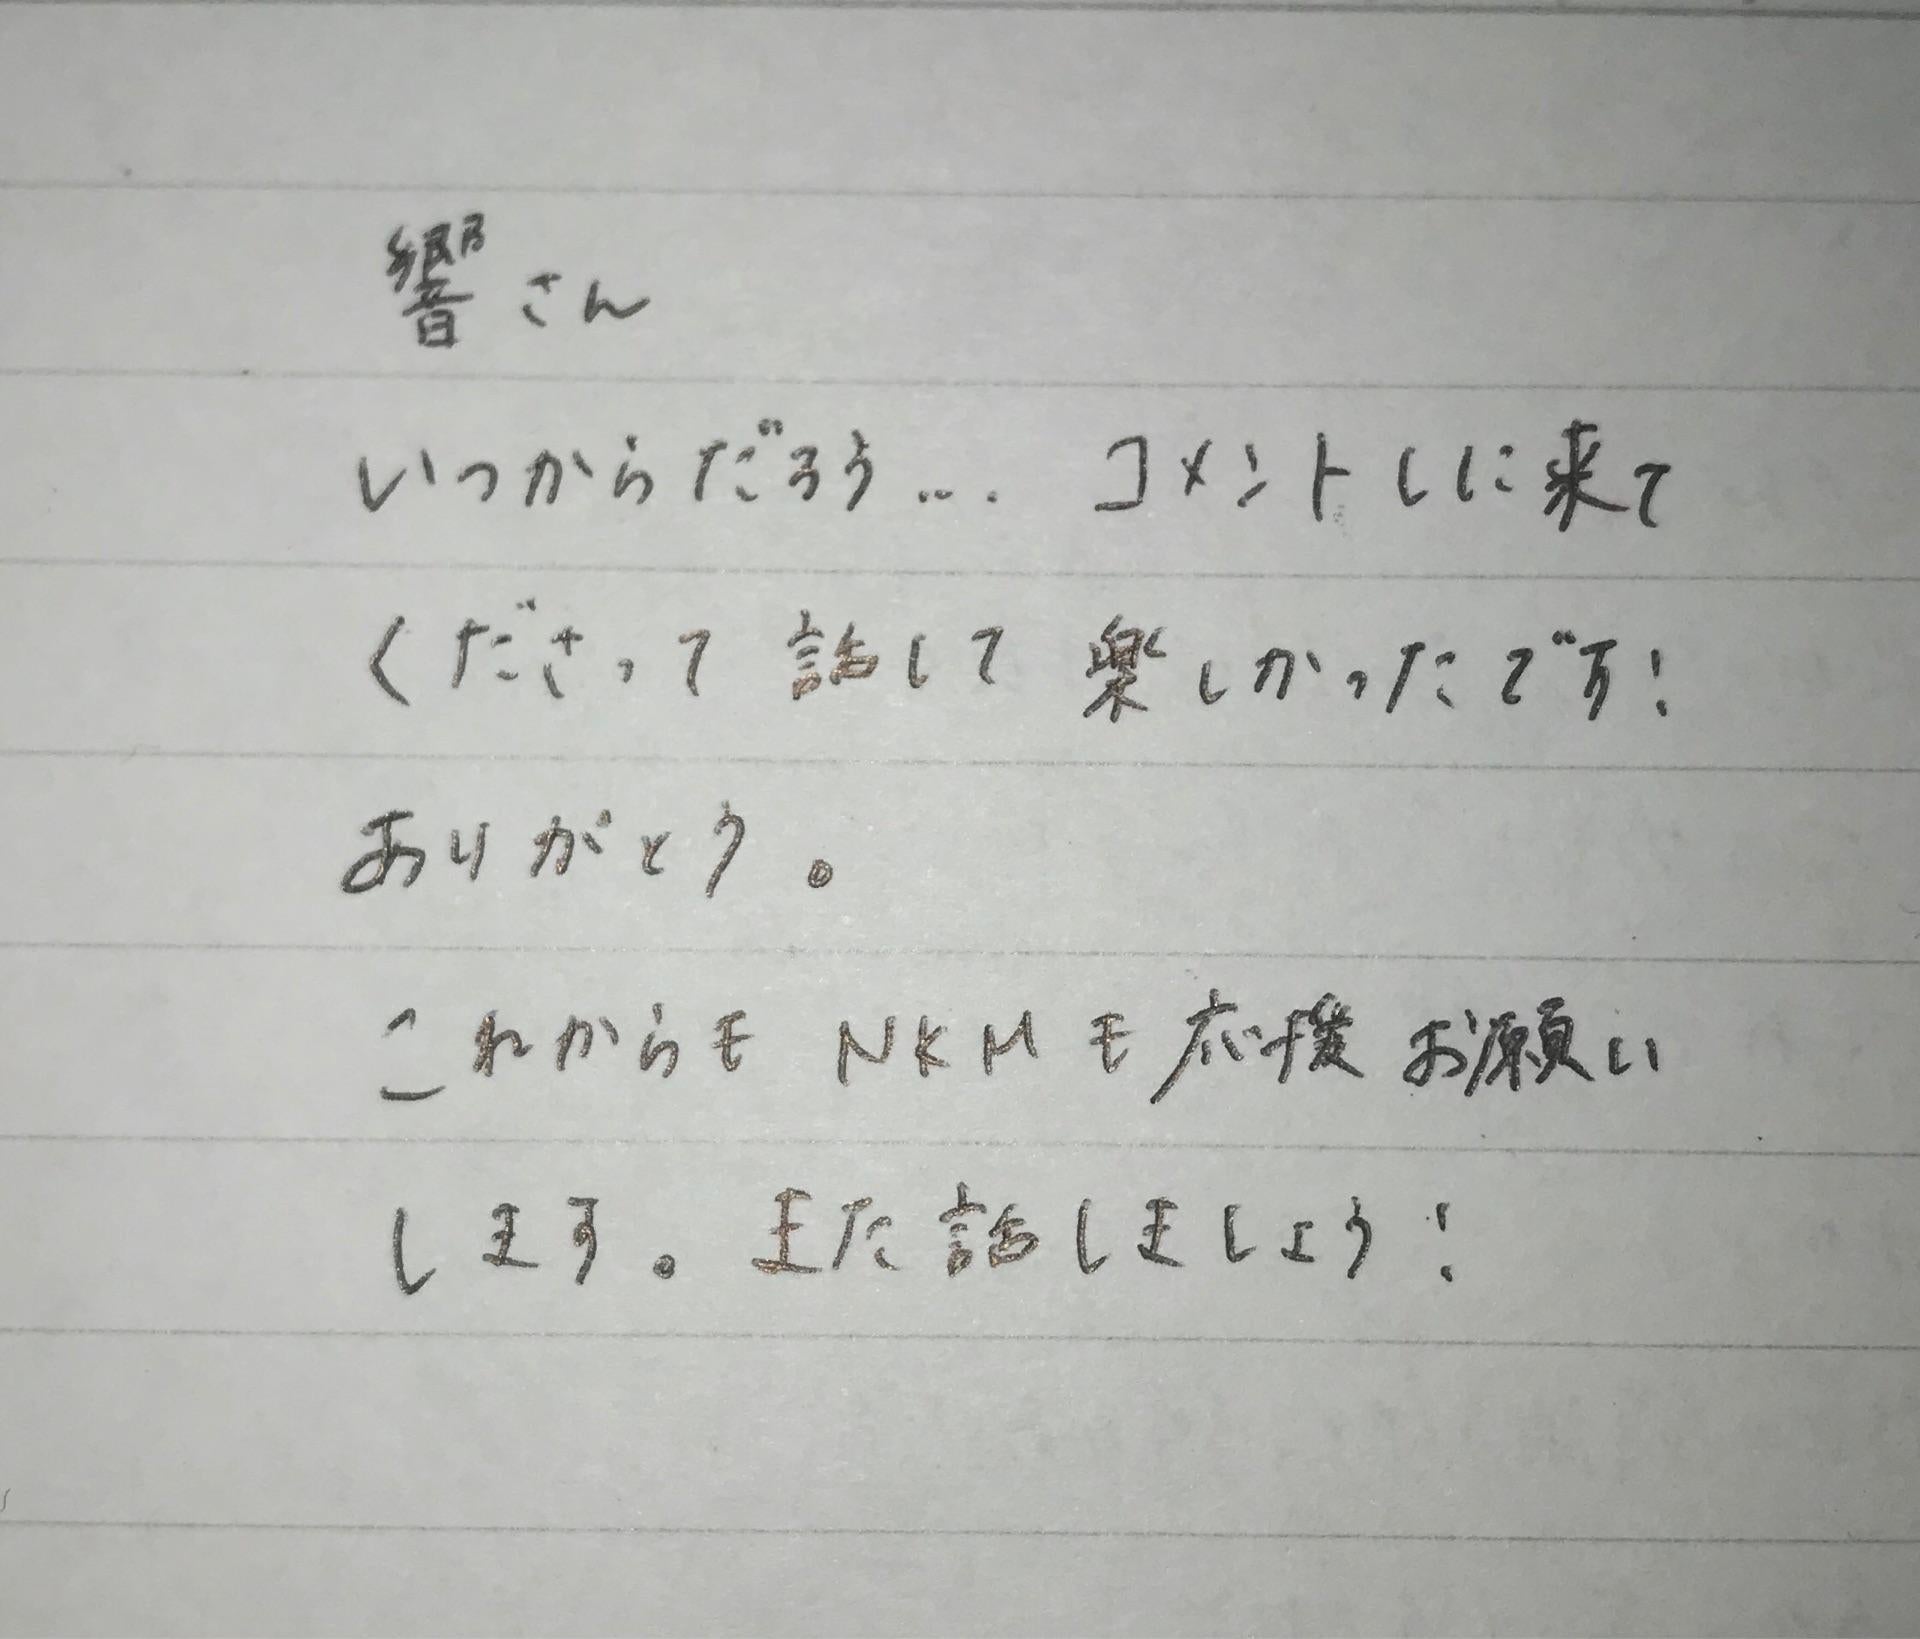 響さん
いつからだろう... コメントしに来て
くださって 話して 楽しかったです!
ありがとう。
これからも NKMも 応援 お願い
します。また話しましょう!